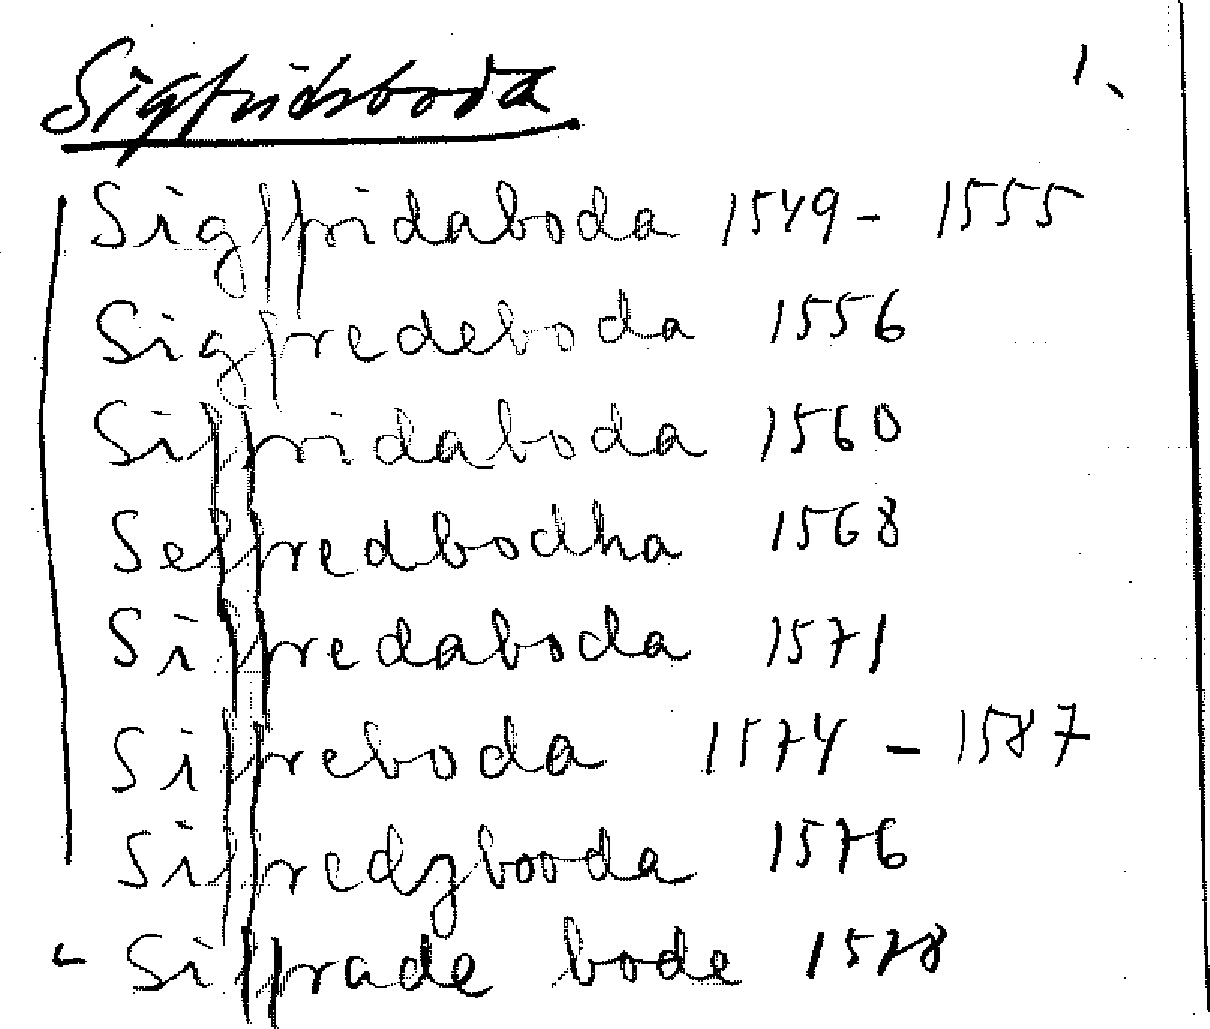 Sigfridsboda 1.
Sigffridaboda 1549 - 1555
Sigfredeboda 1556
Siffridaboda 1560
Seffredbodha 1568
Siffredaboda 1571
Siffreboda 1574 - 1587
Siffredzbooda 1576
Siffrade bode 1578